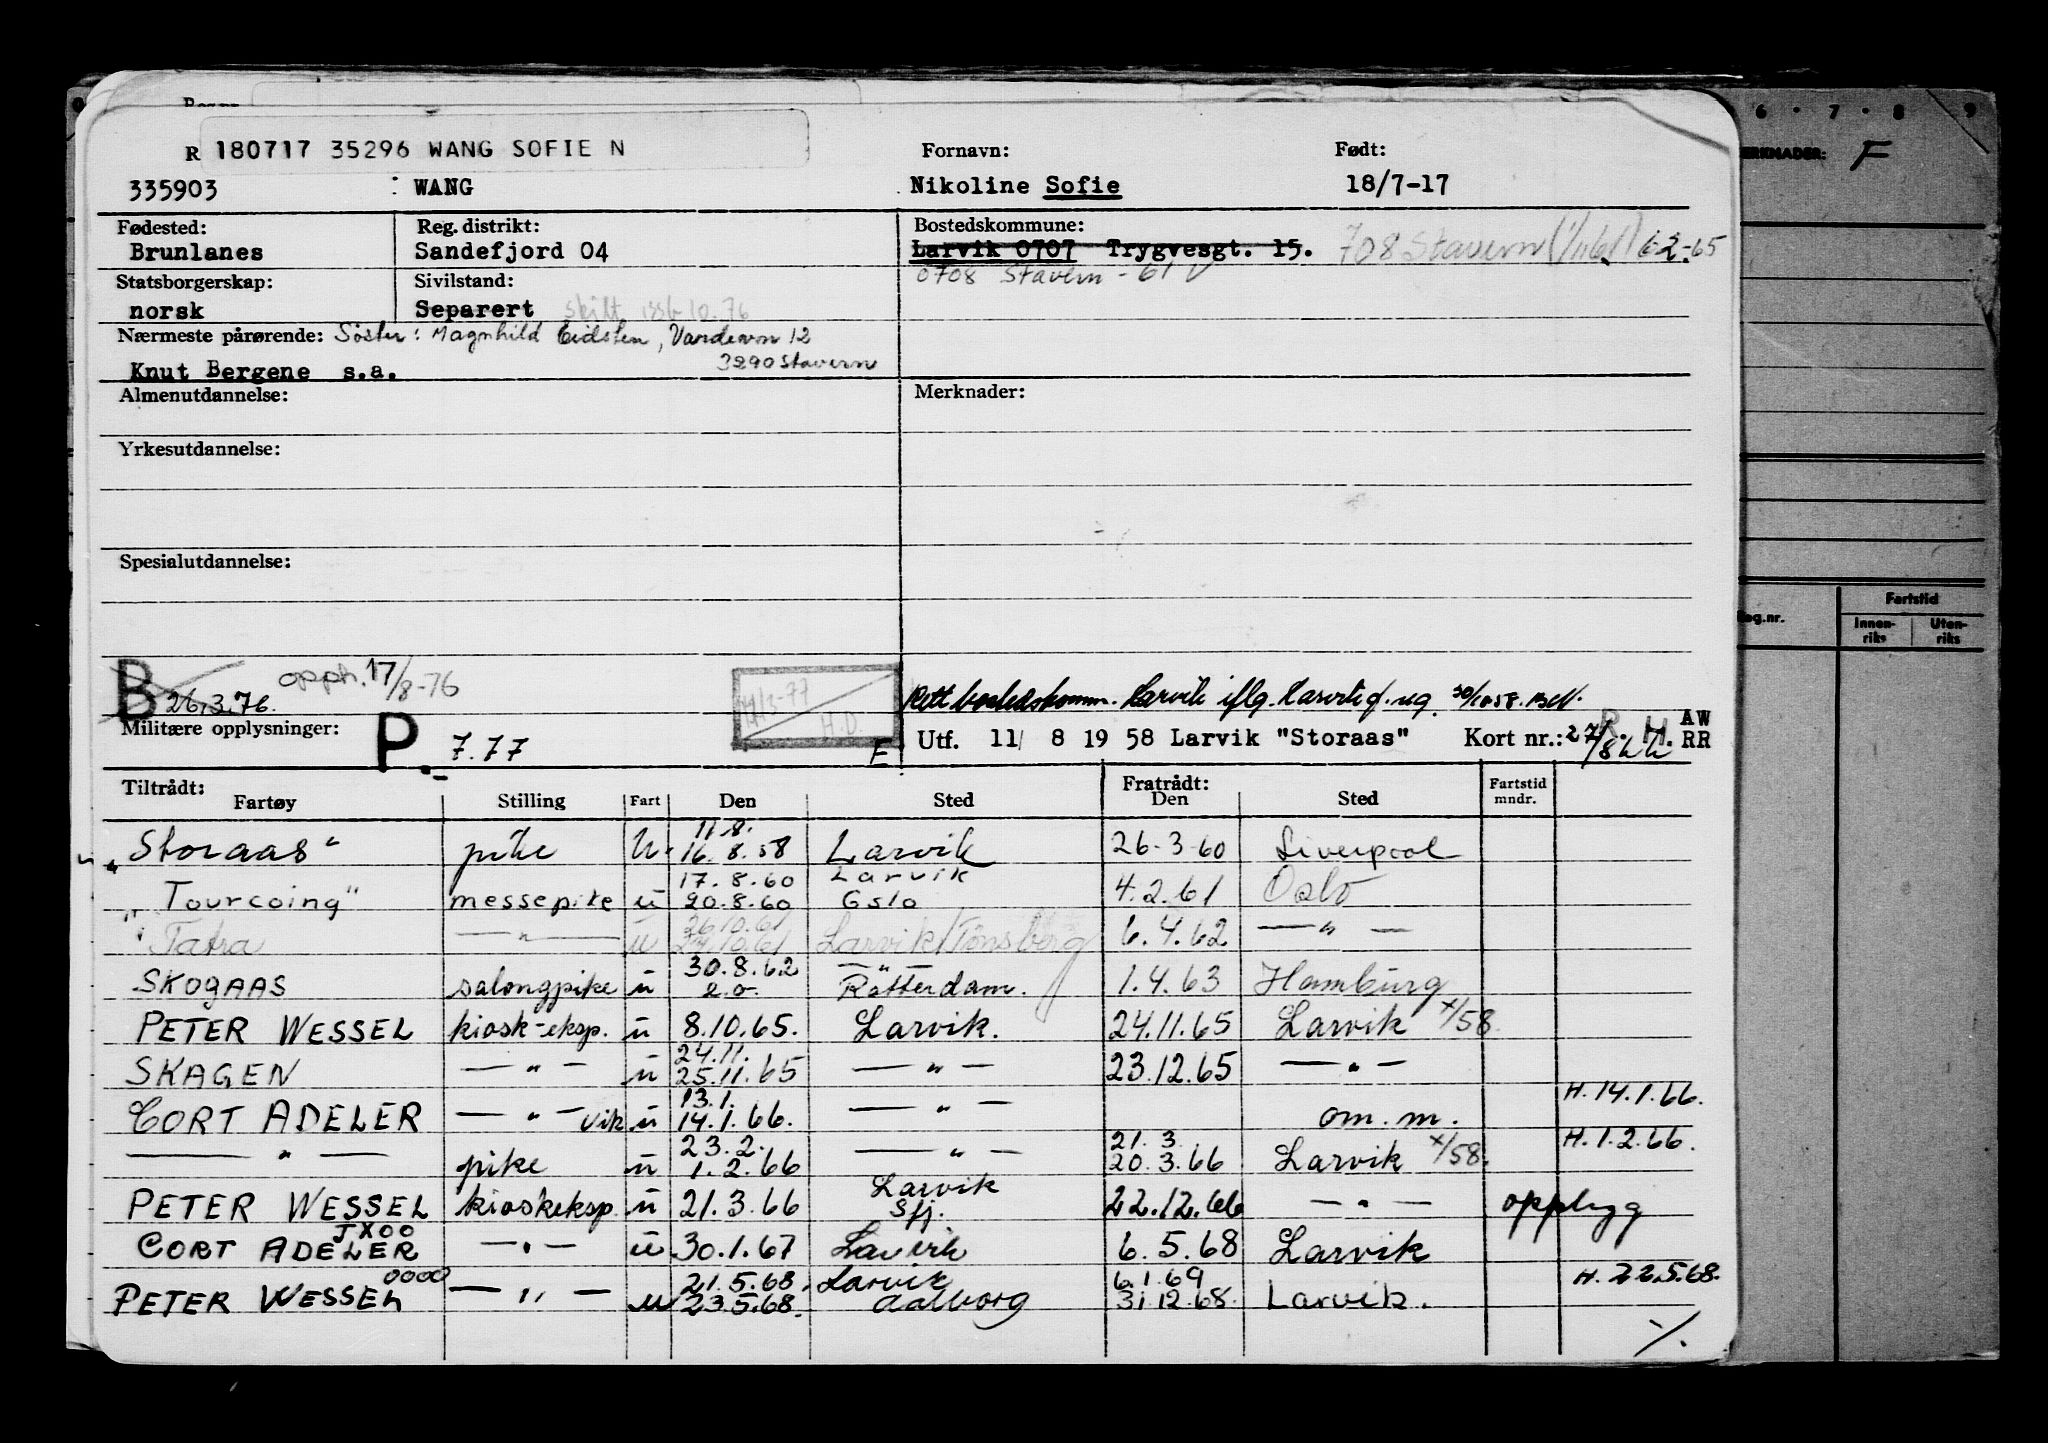 180717 35296 WANG SOFIE N
Fornavn: Født:
335903 WANG Nikoline Sofie 18/7-17
Fødested: Reg. distrikt: Bostedskommune:
Brunlanes Sandefjord 04 Larvik 0707 Trygvesgt. 15. 708 Stavern (1/1161) 6-2-65
Statsborgerskap: Sivilstand: 0708 Stavern - 61 V
norsk Separert skilt 10.76
Nærmeste pårørende: Søster: Magnhild Eidsten, Vardevn 12
Knut Bergene s.a. 3290 Stavern
Almenutdannelse: Merknader:
Yrkesutdannelse:
Spesialutdannelse:
B 26.3.76. opph. 17/8-76 H.D. Rett bostedskomm. Larvik iflg. Larvik
Militære opplysninger: P. 7.77 F Utf. 11/ 8 19 58 Larvik "Storaas" Kort nr.: R. H. AW RR
Tiltrådt: Fratrådt: Fartstid mndr.
Fartøy Stilling Fart Den Sted Den Sted
11.8.
"Storaas" pike u. 16.8.58 Larvik 26-3-60 Liverpool
17.8.60 Larvik
"Tourcoing" messepike u 20.8.60 Oslo 4.2.61 Oslo
26.10.61
"Tatra — " — u 27.10.61 Larvik/Tønsberg 6.4.62 — " —
30.8.62 — " —
SKOGAAS salongpike u s.d. Rotterdam. 1.4.63 Hamburg
PETER WESSEL kiosk-eksp. u 8.10.65. Larvik. 24.11.65 Larvik x/58
24.11.
SKAGEN — " — u 25.11.65 — " — 23.12.65 — " —
13.1. H. 14.1.66.
CORT ADELER — " — vik u 14.1.66. — " — om. m.
23.2. 21.3 H. 1.2.66.
— " — pike u 1.2.66 — " — 20.3.66 Larvik x/58.
Larvik
PETER WESSEL kioskeksp. u 21.3.66 Sfj. 22.12.66 — " — opphygg
JXOO
CORT ADELER — " — u 30.1.67 Larvik 6.5.68 Larvik
0000 21.5.68, Larvik 6.1.69 H. 22.5.68.
PETER WESSEL — " — u 23.5.68. Aalborg 31.12.68. Larvik.
%.
6 · 7 · 8 · 9
F
Fartstid
Innen-riks Uten-riks